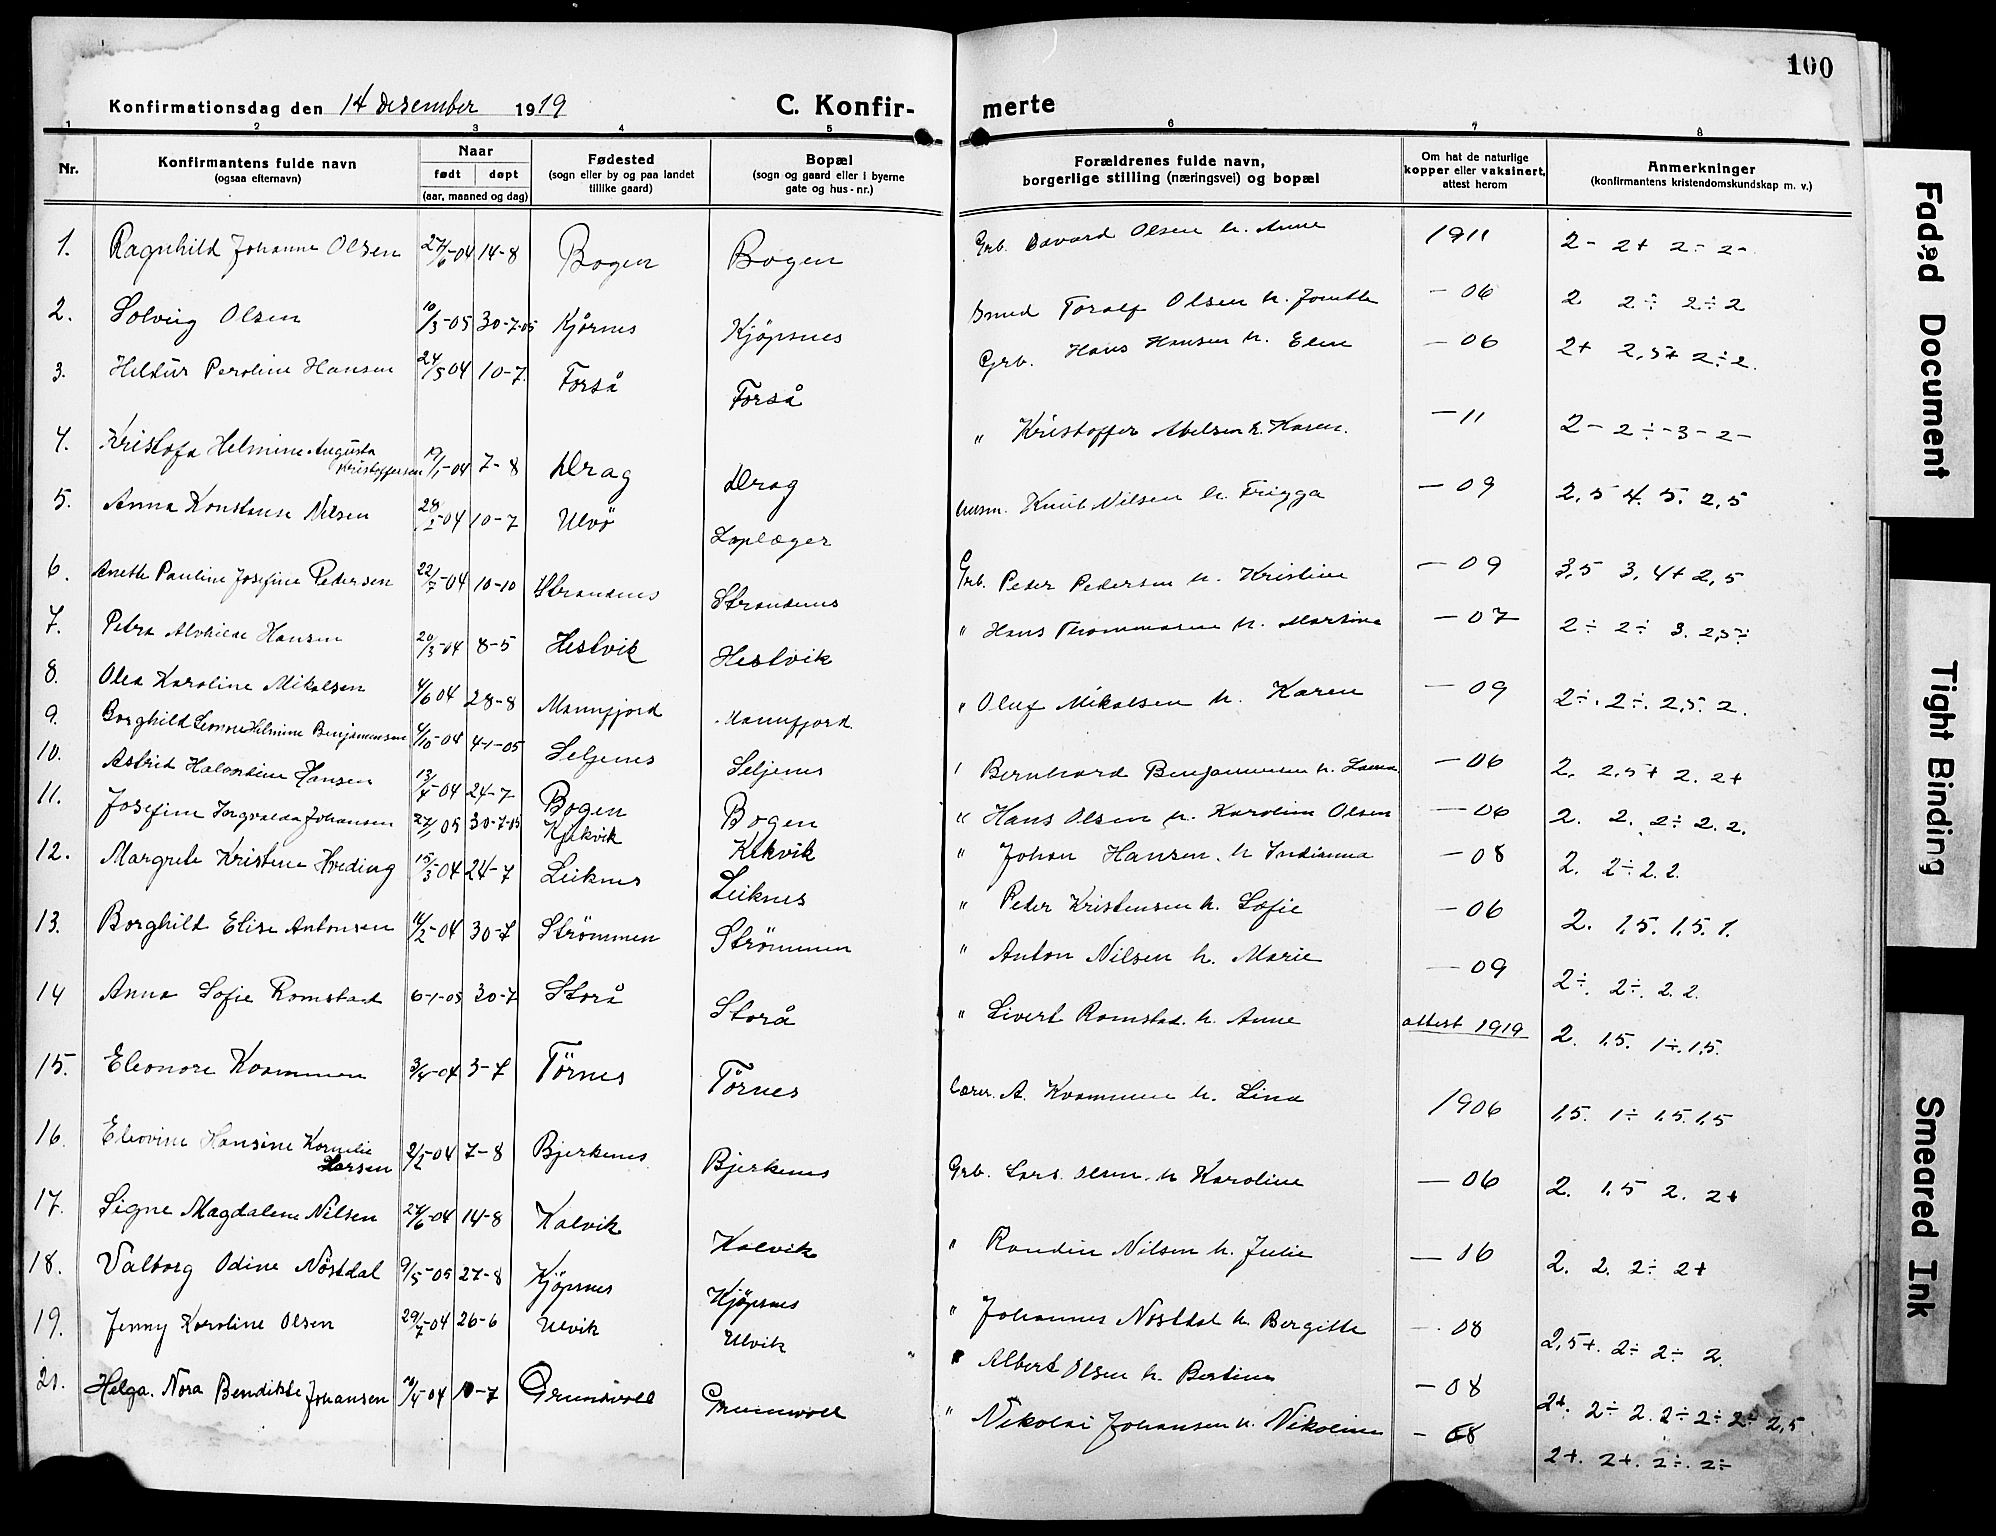 100
Konfirmationsdag den 14 desember 1919
C. Konfir-
merte
1 2 3 4 5 6 7 8
Nr.
Konfirmantens fulde navn
(ogsaa efternavn)
Naar
født døpt
(aar, maaned og dag)
Fødested
(sogn eller by og paa landet
tillike gaard)
Bopæl
(sogn og gaard eller i byerne
gate og hus-nr.)
Forældrenes fulde navn,
borgerlige stilling (næringsvei) og bopæl
Om hat de naturlige
kopper eller vaksinert,
attest herom
Anmerkninger
(konfirmantens kristendomskundskap m. v.)
1. Ragnhild Johanne Olsen 27/6-04 14-8 Bogen Bogen Grb. Edvard Olsen h. Anne 1911 2- 2+ 2- 2-
2. Solveig Olsen 10/3-05 30-7-05 Kjøpsnes Smed Toralf Olsen h. -06 2. 2÷ 2÷2
3. Hildur Peroline Hansen 24/5 04 10-7. Forså Forså Grb. Hans Hansen h. Elen -06 2+ 2,5+ 2÷2.
4. Kristofa Helmine Augusta
Kristoffersen 19/1-04 7-8 Drag Drag " Kristoffer Abelsen h. Karen. -11 2- 2÷-3-2-
5. Anna Konstanse Nilsen 04 10-7 Ulvö Laplæger Knut Nilsen h. Frigga -09 2,5 4. 5. 2,5
6. Anette Pauline Josefine Pedersen 22/7-04 10-10 Strandnes Strandnes Grb. Peder Pedersen h. Kristine -09 3,5 3, 4+ 2,5
7. Petra Alvhilde Hansen 20/3-04 8-5 Hestvik Hestvik " Hans Thommasen h. Martine -07 2÷ 2÷ 3. 2,5÷
8. Olea Karoline Mikalsen 4/6 04 28-8 Mannfjord Mannfjord " Oluf Mikalsen h. Karen -09 2÷. 2÷. 2,5. 2.
9. Borghild Leonore Helmine Benjaminsen 4/10-04 4-1-05 Seljenes Seljenes " Bernhard Benjaminsen h. -06 2. 2,5+ 2. 2+
10. Astrid Halvardine Hansen 13/4-04 24-7 Bogen Bogen " Hans Olsen h. Karoline Olsen -06 2. 2. 2÷ 2. 2.
11. Josefine Ingvalda Johansen 27/1 05 30-7-05 Kjekvik Kekvik " Johan Hansen. h Indianna -08 2. 2÷ 2. 2.
12. Margrete Kristene Hveding 15/3 04 24-7 Leiknes Leiknes " Peder Kristensen h. Sofie -06 2. 1,5. 1,5. 1.
13. Borghild Elise Antonsen 11/2-04 30-7 Strømmen Strømmen " Anton Nilsen h. Marie -09 2÷. 2÷. 2. 2.
14 Anna Sofie Romstad 6-1-05 30-7 Storå Storå " Sivert Romstad. h. Anne attest 1919 2. 1,5. 1÷. 1,5.
15. Eleonore Kvammen 3/4-04 3-7 Tørnes Tørnes Lærer. A. Kvammen h. Lina 1906 1,5. 1÷ 1,5. 1,5
16. Elevine Hansine Kornelie
Larsen 2/2-04 7-8 Bjerkenes Bjerkenes Grb. Lars Olsen. h Karoline -06 2. 1,5 2. 2+
17. Signe Magdalene Nilsen 27/6-04 14-8 Kalvik Kalvik " Randin Nilsen h. Julie -06 2. 2. 2÷ 2+
18. Valborg Odine Nøstdal 9/5-05 27-8 Kjøpsnes Kjøpsnes " Johannes Nøstdal h. Bergitte -08 2,5+. 2÷ 2÷ 2.
19. Jenny Karoline Olsen 29/7-04 26-6 Ulvik Ulvik " Albert Olsen h. Bertine -08 2+. 2÷ 2. 2÷ 2÷ 2÷ 2,5
21. Helga. Nora Bendikte Johansen 10/4-04 10-7 Grundvoll " Nikolai Johansen h. Nikoline -08 2+. 2+. 2÷. 2÷
Faded Document
Tight Binding
Smeared Ink